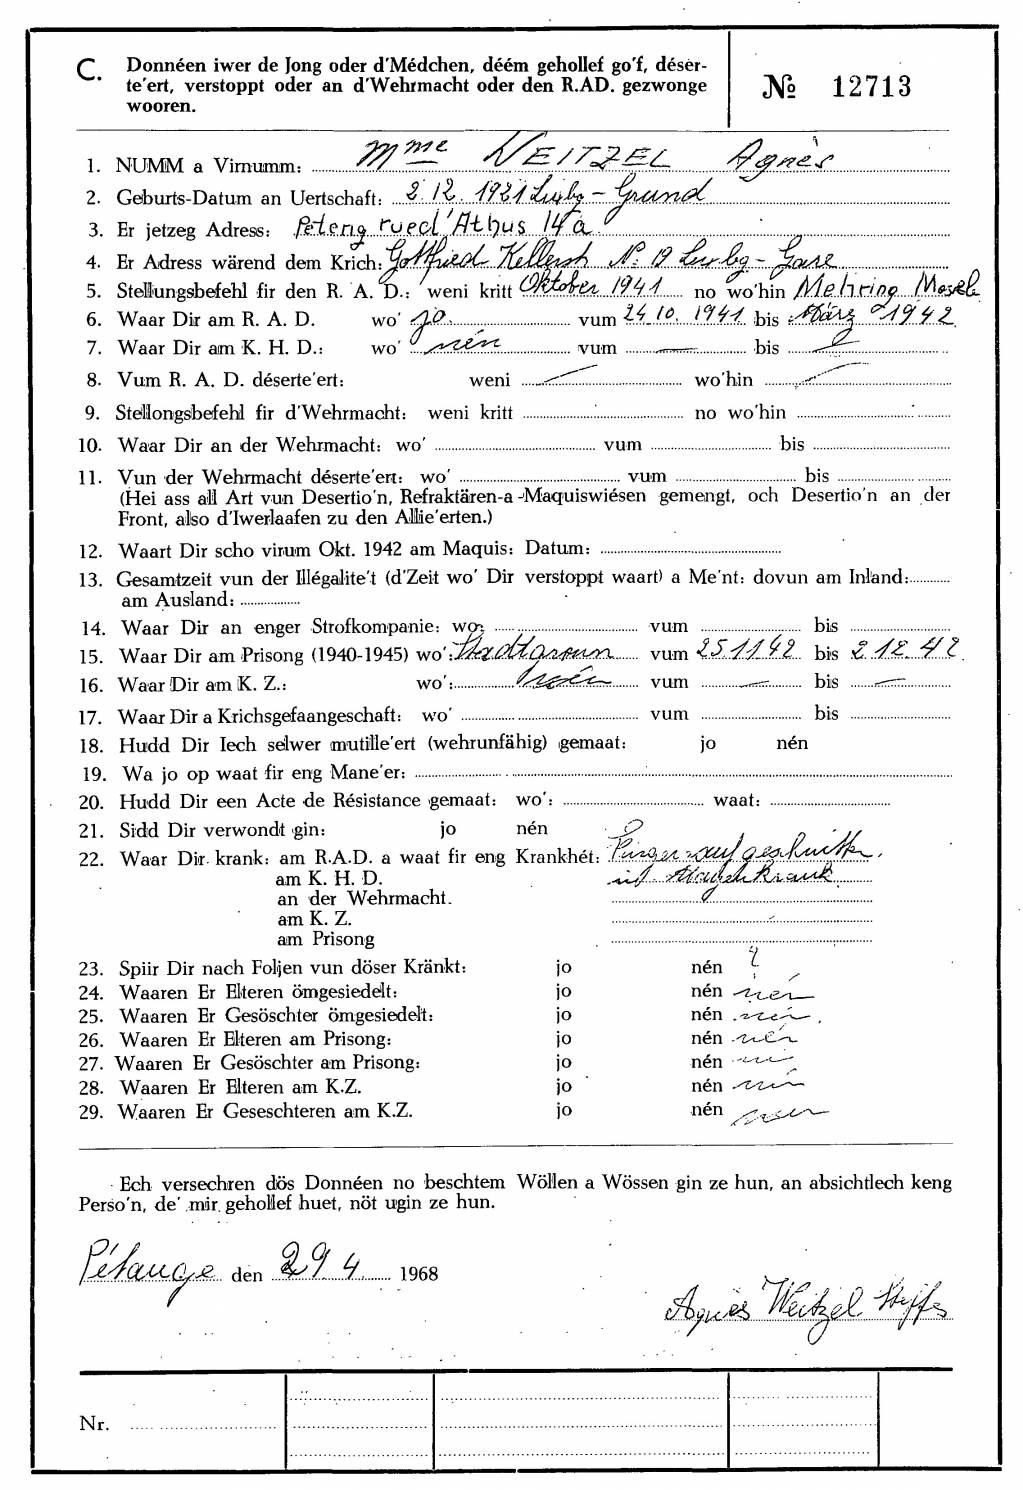 C. Donnéen iwer de Jong oder d'Médchen, déém gehollef go'f, déser-
te'ert, verstoppt oder an d'Wehrmacht oder den R.AD. gezwonge
wooren.
№ 12713
1. NUMM a Virnumm: Mme WEITZEL Agnès
2. Geburts-Datum an Uertschaft: 2.12.1921 Luxbg - Grund
3. Er jetzeg Adress: Péteng rue d'Athus 14a
4. Er Adress wärend dem Krich: Gottfried Kellerstr N: 19 Luxbg - Gare
5. Stellungsbefehl fir den R. A. D.: weni kritt Oktober 1941 no wo'hin Mehring Mosel
6. Waar Dir am R. A. D. wo' jo. vum 24.10.1941 bis März 1942.
7. Waar Dir am K. H. D.: wo' nén vum — bis
8. Vum R. A. D. déserte'ert: weni wo'hin
9. Stellongsbefehl fir d'Wehrmacht: weni kritt no wo'hin
10. Waar Dir an der Wehrmacht: wo' vum bis
11. Vun der Wehrmacht déserte'ert: wo' vum bis
(Hei ass all Art vun Desertio'n, Refraktären-a -Maquiswiésen gemengt, och Desertio'n an der
Front, also d'Iwerlaafen zu den Allie'erten.)
12. Waart Dir scho virum Okt. 1942 am Maquis: Datum:
13. Gesamtzeit vun der Illégalite't (d'Zeit wo' Dir verstoppt waart) a Me'nt: dovun am Inland:
am Ausland:
14. Waar Dir an enger Strofkompanie: wo: vum bis
15. Waar Dir am Prison (1940-1945) wo': Stadtgrund vum 25.11.42 bis 2.12.42.
16. Waar Dir am K. Z.: wo': nén vum — bis —
17. Waar Dir a Krichsgefaangeschaft: wo' vum bis
18. Hudd Dir Iech selwer mutille'ert (wehrunfähig) gemaat: jo nén
19. Wa jo op waat fir eng Mane'er:
20. Hudd Dir een Acte de Résistance gemaat: wo': waat:
21. Sidd Dir verwondt gin: jo nén
22. Waar Dir krank: am R.A.D. a waat fir eng Krankhét: Finger aufgeschnitten,
am K. H. D.
an der Wehrmacht.
am K. Z.
am Prisong
23. Spiir Dir nach Foljen vun döser Kränkt: jo nén ?
24. Waaren Er Elteren ömgesiedelt: jo nén nén
25. Waaren Er Gesöschter ömgesiedelt: jo nén nén
26. Waaren Er Elteren am Prisong: jo nén nén
27. Waaren Er Gesöschter am Prisong: jo nén nén
28. Waaren Er Elteren am K.Z. jo nén nén
29. Waaren Er Geseschteren am K.Z. jo nén nén
Ech versechren dös Donnéen no beschtem Wöllen a Wössen gin ze hun, an absichtlech keng
Perso'n, de' mir gehollef huet, nöt ugin ze hun.
Pétange den 29 4. 1968
Agnès Weitzel Steffes
Nr.